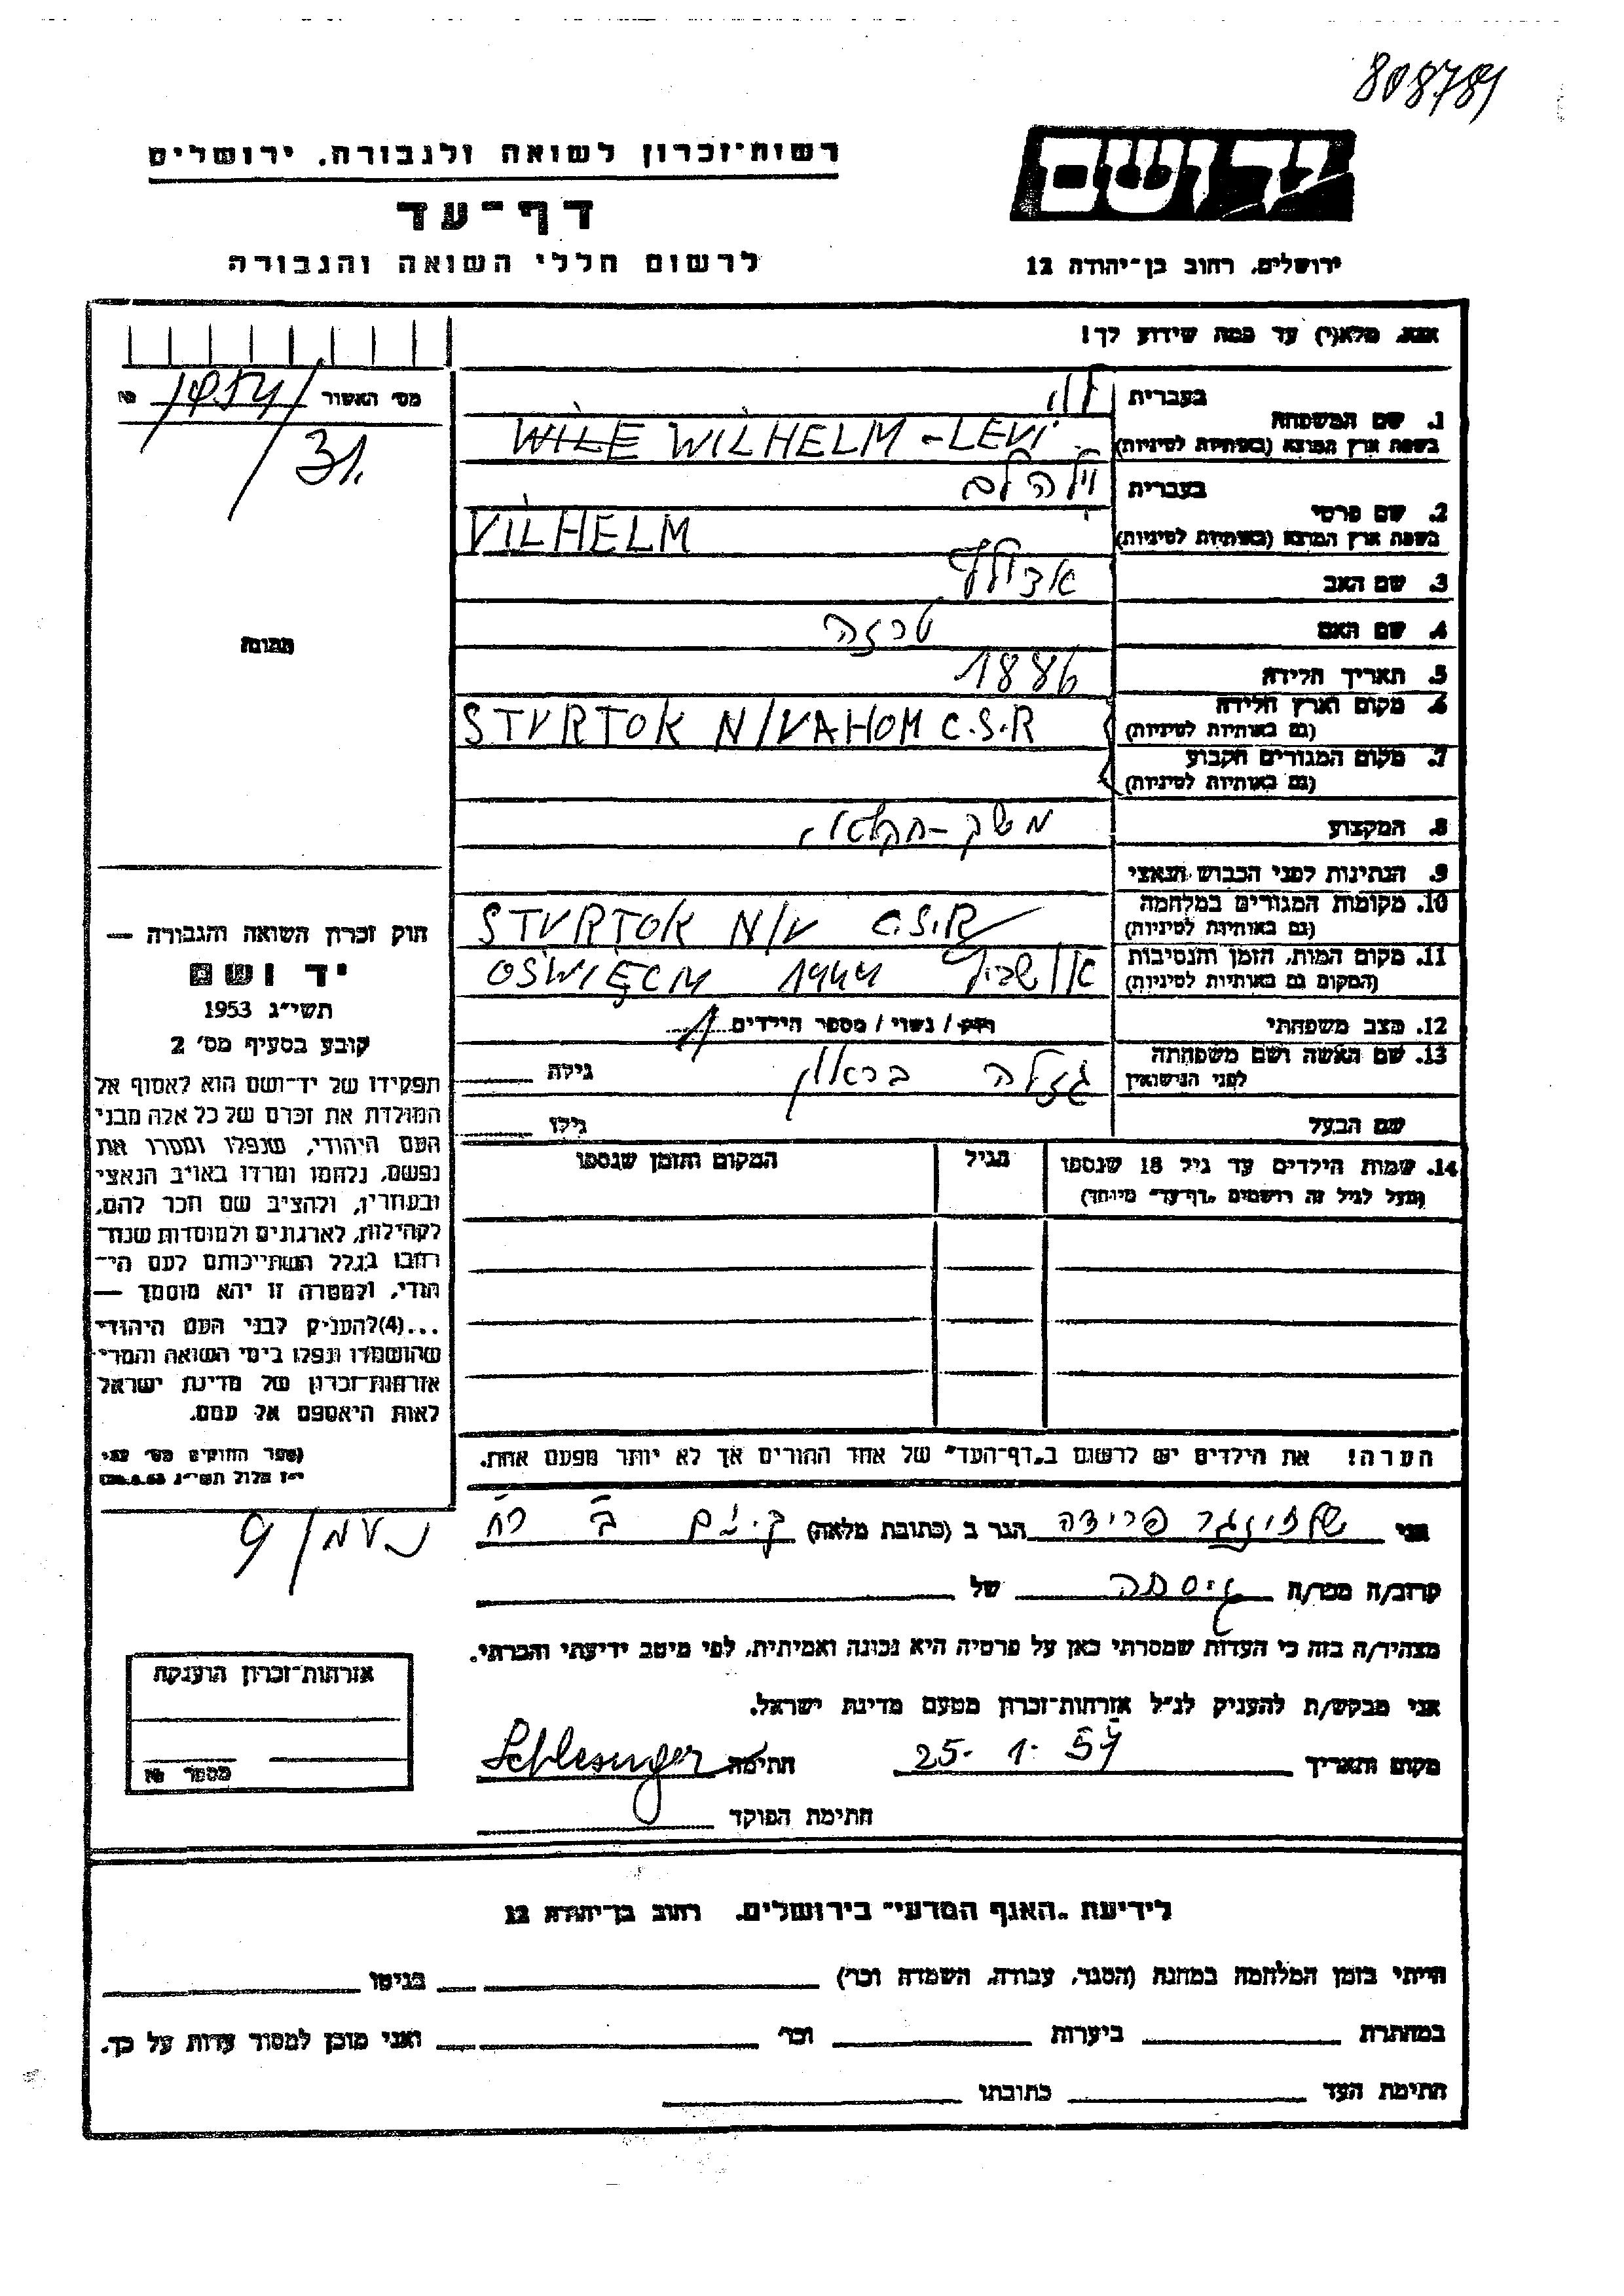 808789
רשות־זכרון לשואה ולגבורה, ירושלים
יד ושם
דף־עד
לרשום חללי השואה והגבורה
ירושלים, רחוב בן־יהודה 12
אנא, מלא(י) עד כמה שידוע לך!
מס' האשור №
31.
1. שם המשפחה
בעברית לוי
בשפת ארץ המוצא (באותיות לטיניות) WILE WILHELM - LEVI
2. שם פרטי
בעברית וילהלם
בשפת ארץ המוצא (באותיות לטיניות) VILHELM
3. שם האב אדולף
4. שם האם טרזה
5. תאריך הלידה 1886
6. מקום וארץ הלידה (גם באותיות לטיניות) STVRTOK N/VAHOM C.S.R
7. מקום המגורים הקבוע (גם באותיות לטיניות)
8. המקצוע משק-חקלאי
9. הנתינות לפני הכבוש הנאצי
10. מקומות המגורים במלחמה (גם באותיות לטיניות) STVRTOK N/V C.S.R
11. מקום המות, הזמן והנסיבות (המקום גם באותיות לטיניות) OŚWIĘCM 1944
12. מצב משפחתי רוק / נשוי / מספר הילדים 1
13. שם האשה ושם משפחתה לפני הנישואין גזלה בראון גילה
שם הבעל גילו
14. שמות הילדים עד גיל 18 שנספו (מעל לגיל זה רושמים "דף־עד" מיוחד) הגיל המקום והזמן שנספו
הערה! את הילדים יש לרשום ב"דף־העד" של אחד ההורים אך לא יותר מפעם אחת.
תמונה
חוק זכרון השואה והגבורה —
יד ושם
תשי"ג 1953
קובע בסעיף מס' 2
תפקידו של יד־ושם הוא לאסוף אל
המולדת את זכרם של כל אלה מבני
העם היהודי, שנפלו ומסרו את
נפשם, נלחמו ומרדו באויב הנאצי
ובעוזריו, ולהציב שם וזכר להם,
לקהילות, לארגונים ולמוסדות שנח־
רבו בגלל השתייכותם לעם הי־
הודי, ולמטרה זו יהא מוסמך —
...(4) להעניק לבני העם היהודי
שהושמדו ונפלו בימי השואה והמרי
אזרחות־זכרון של מדינת ישראל
לאות היאספם אל עמם.
(ספר החוקים מס' 132
י"ז אלול תשי"ג 28.8.53)
אני שלזינגר פרידה הגר ב (כתובת מלאה)
קרוב/ה מכר/ה גיסתה של
מצהיר/ה בזה כי העדות שמסרתי כאן על פרטיה היא נכונה ואמיתית, לפי מיטב ידיעתי והכרתי.
אני מבקש/ת להעניק לנ"ל אזרחות־זכרון מטעם מדינת ישראל.
מקום ותאריך 25. 1. 57 חתימה Schlesinger
חתימת הפוקד
אזרחות־זכרון הוענקה
מספר №
לידיעת "האגף המדעי" בירושלים, רחוב בן־יהודה 12
הייתי בזמן המלחמה במחנה (הסגר, עבודה, השמדה וכו') בגיטו
במחתרת ביערות וכו' ואני מוכן למסור עדות על כך.
חתימת העד כתובתו